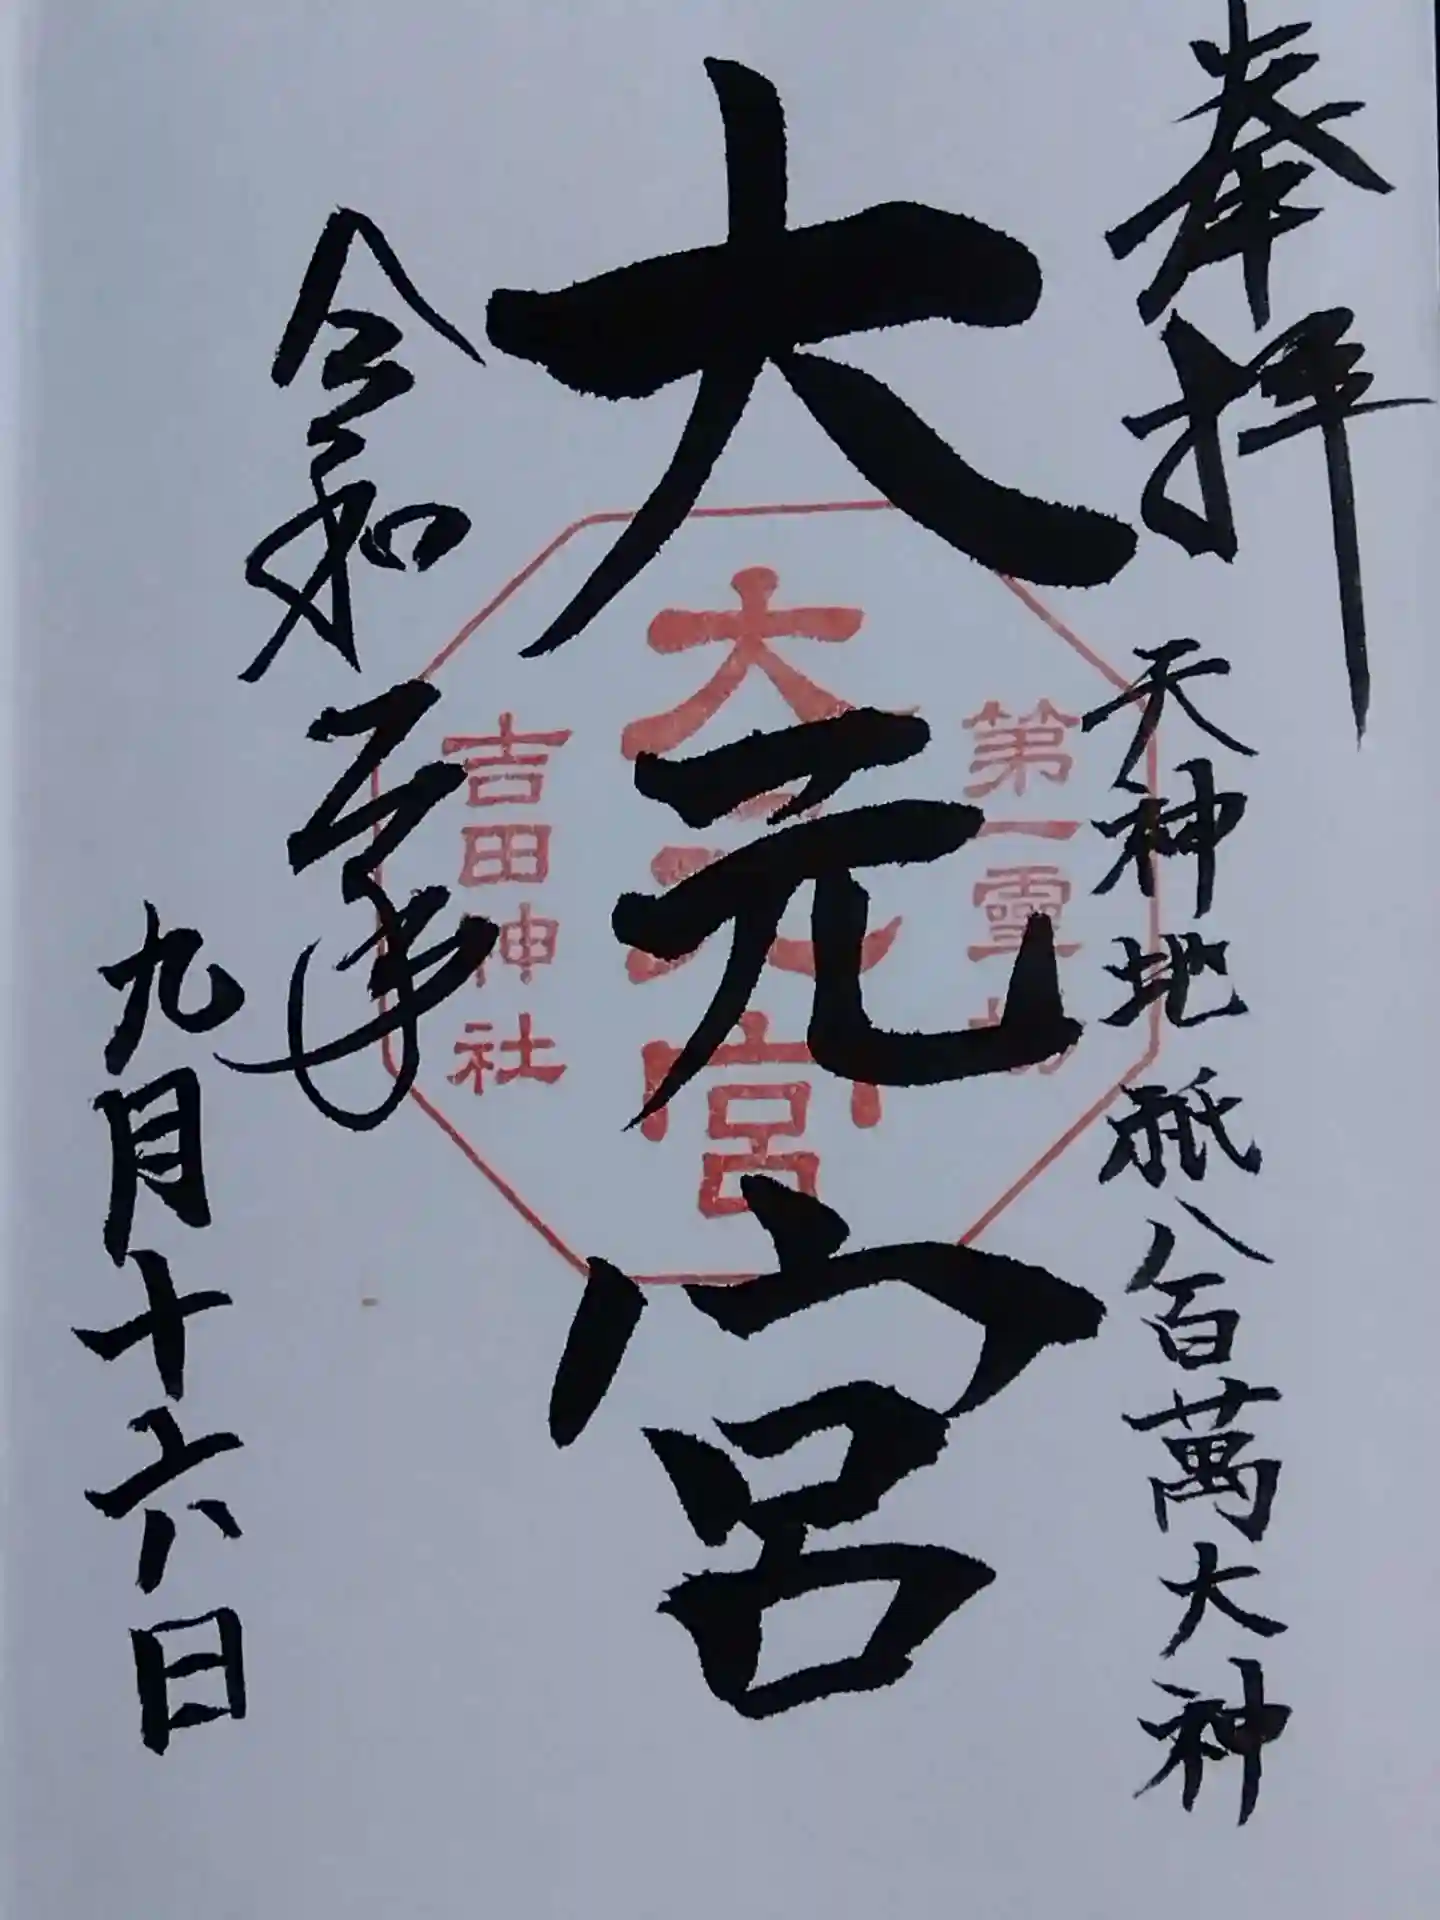 奉拝
天神地祇八百萬大神
第一靈場
大元宮
大元宮
吉田神社
令和五年
九月十六日